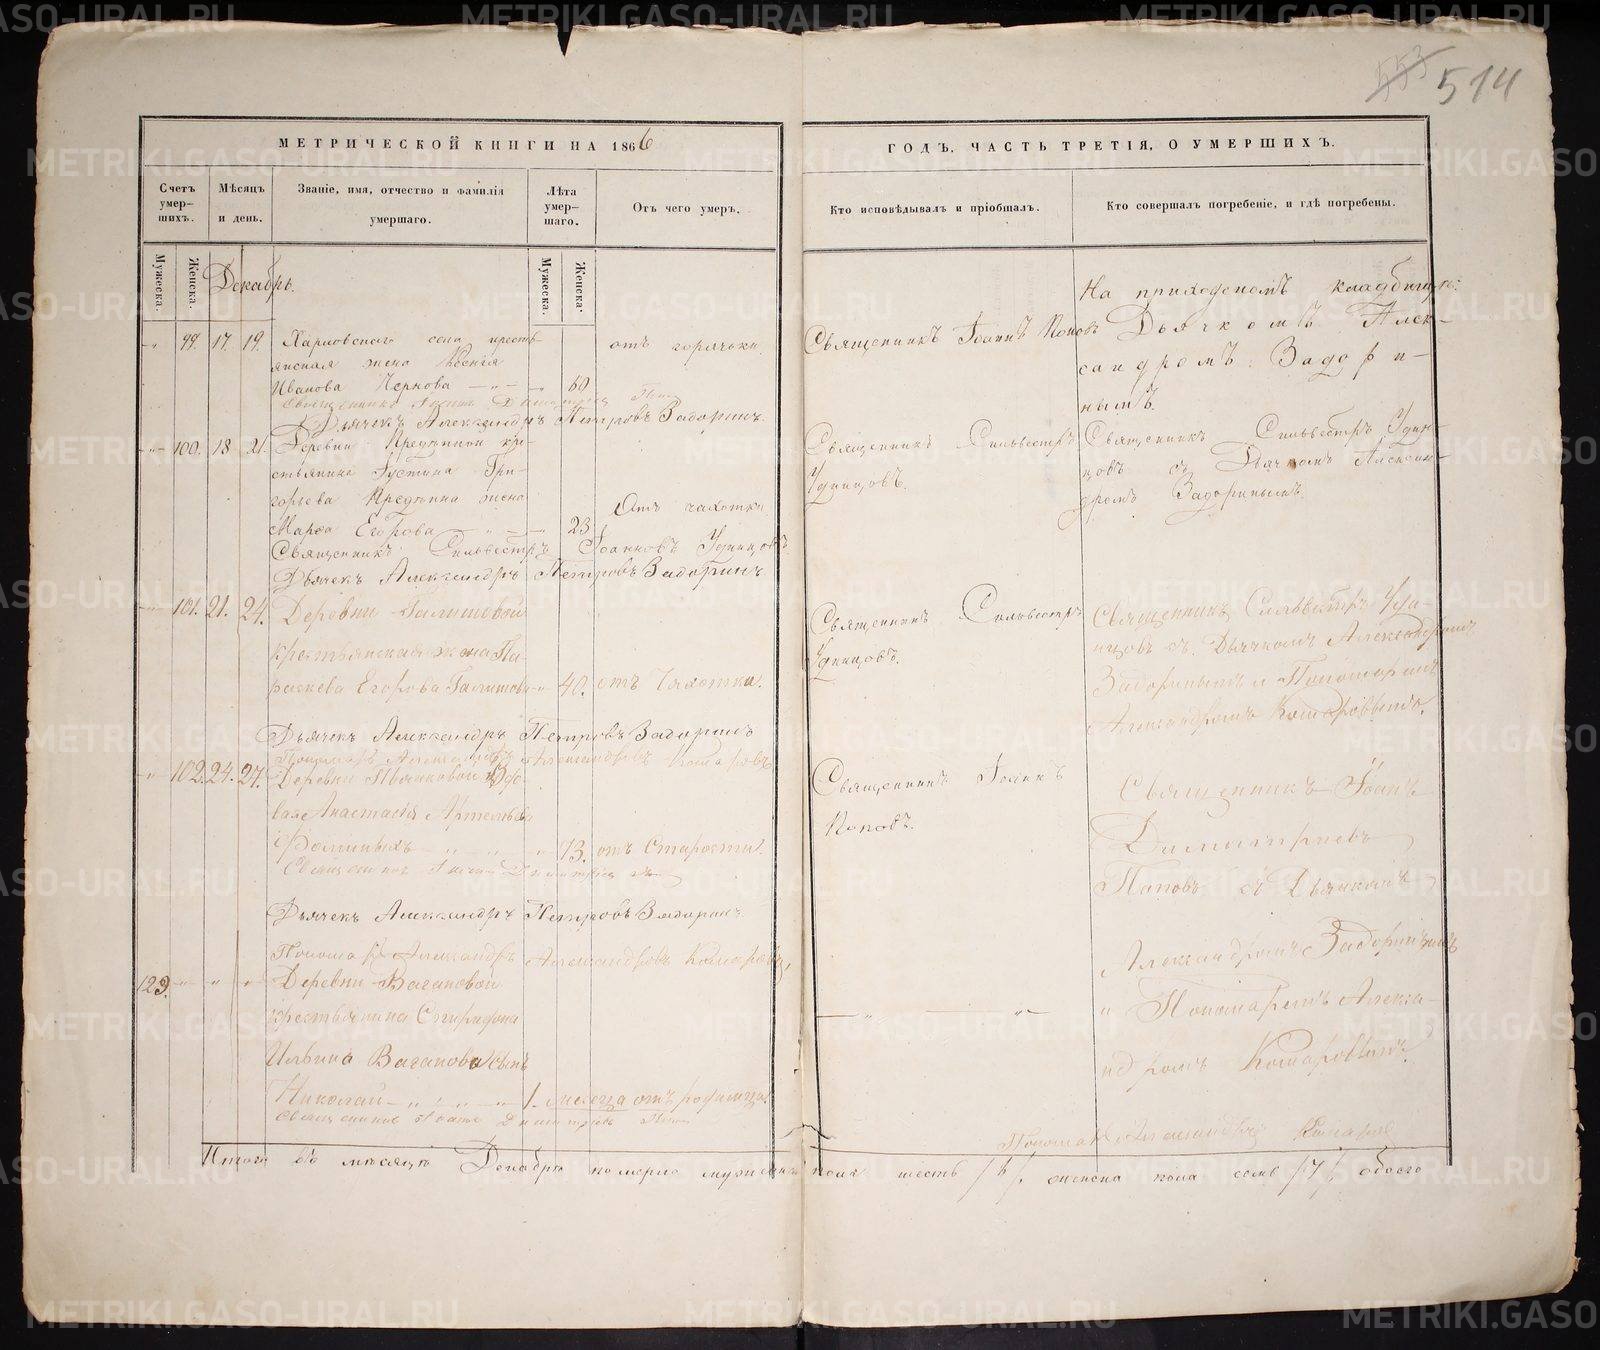 553 514
МЕТРИЧЕСКОЙ КНИГИ НА 1866
ГОДЪ, ЧАСТЬ ТРЕТІЯ, О УМЕРШИХЪ.
Счетъ умер-шихъ.
Мѣсяцъ и день.
Званіе, имя, отчество и фамилія умершаго.
Лѣта умер-шаго.
Отъ чего умеръ.
Кто исповѣдывалъ и пріобщалъ.
Кто совершалъ погребеніе, и гдѣ погребены.
Мужеска.
Женска.
Декабрь.
Мужеска.
Женска.
На приходскомъ кладбищѣ:
99. 17. 19. Харловскаго села кресть-
янская жена Ксенія
Иванова Чернова 60
отъ горячки
Священникъ Іоаннъ Поповъ
Дьячкомъ Алек-
сандромъ Задори-
нымъ.
Дьячекъ Александръ Петровъ Задоринъ.
100. 18 21. Деревни кре-
стьянина Густина Гри-
горьева жена
Марѳа Егорова 23
Отъ чахотки
Священникъ Сильвестръ
Удинцовъ.
Священникъ Сильвестръ Удин-
цовъ съ Дьячкомъ Алексан-
дромъ Задоринымъ.
Священникъ Сильвестръ Іоанновъ Удинцовъ
Дьячекъ Александръ Петровъ Задоринъ
101. 21. 24. Деревни Галишовой
крестьянская жена Па-
раскева Егорова Галишова 40. отъ Чахотки.
Священникъ Сильвестръ
Удинцовъ.
Священникъ Сильвестръ Удин-
цовъ съ Дьячкомъ Александромъ
Задоринымъ и Пономаремъ
Александромъ Комаровымъ.
Дьячекъ Александръ Петровъ Задоринъ
Пономарь Александръ Александровъ Комаровъ
102. 24. 27. Деревни Вдо-
вая Анастасія Артемьева
73. отъ Старости.
Священникъ Іоаннъ
Поповъ.
Священникъ Іоаннъ
Димитріевъ
Поповъ съ Дьячкомъ
Александромъ Задоринымъ
и Пономаремъ Алекса-
ндромъ Комаровымъ.
Дьячекъ Александръ Петровъ Задоринъ.
Пономарь Александръ Александровъ Комаровъ,
129. Деревни Вагановой
крестьянина Спиридона
Ильина Ваганова сынъ
Николай 1. месяца отъ родимца.
Священникъ Іоаннъ Димитріевъ
Пономарь Александръ Комаровъ
Итого въ мѣсяцѣ Декабрѣ померло мужеска пола шесть /6/, женска пола семь /7/, обоего
METRIKI.GASO-URAL.RU